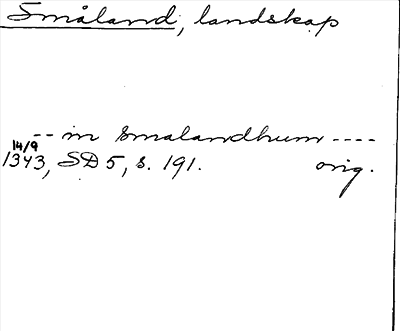 Småland, landskap
-- in smalandhum ----
14/9
1343, SD 5, s. 191. orig.